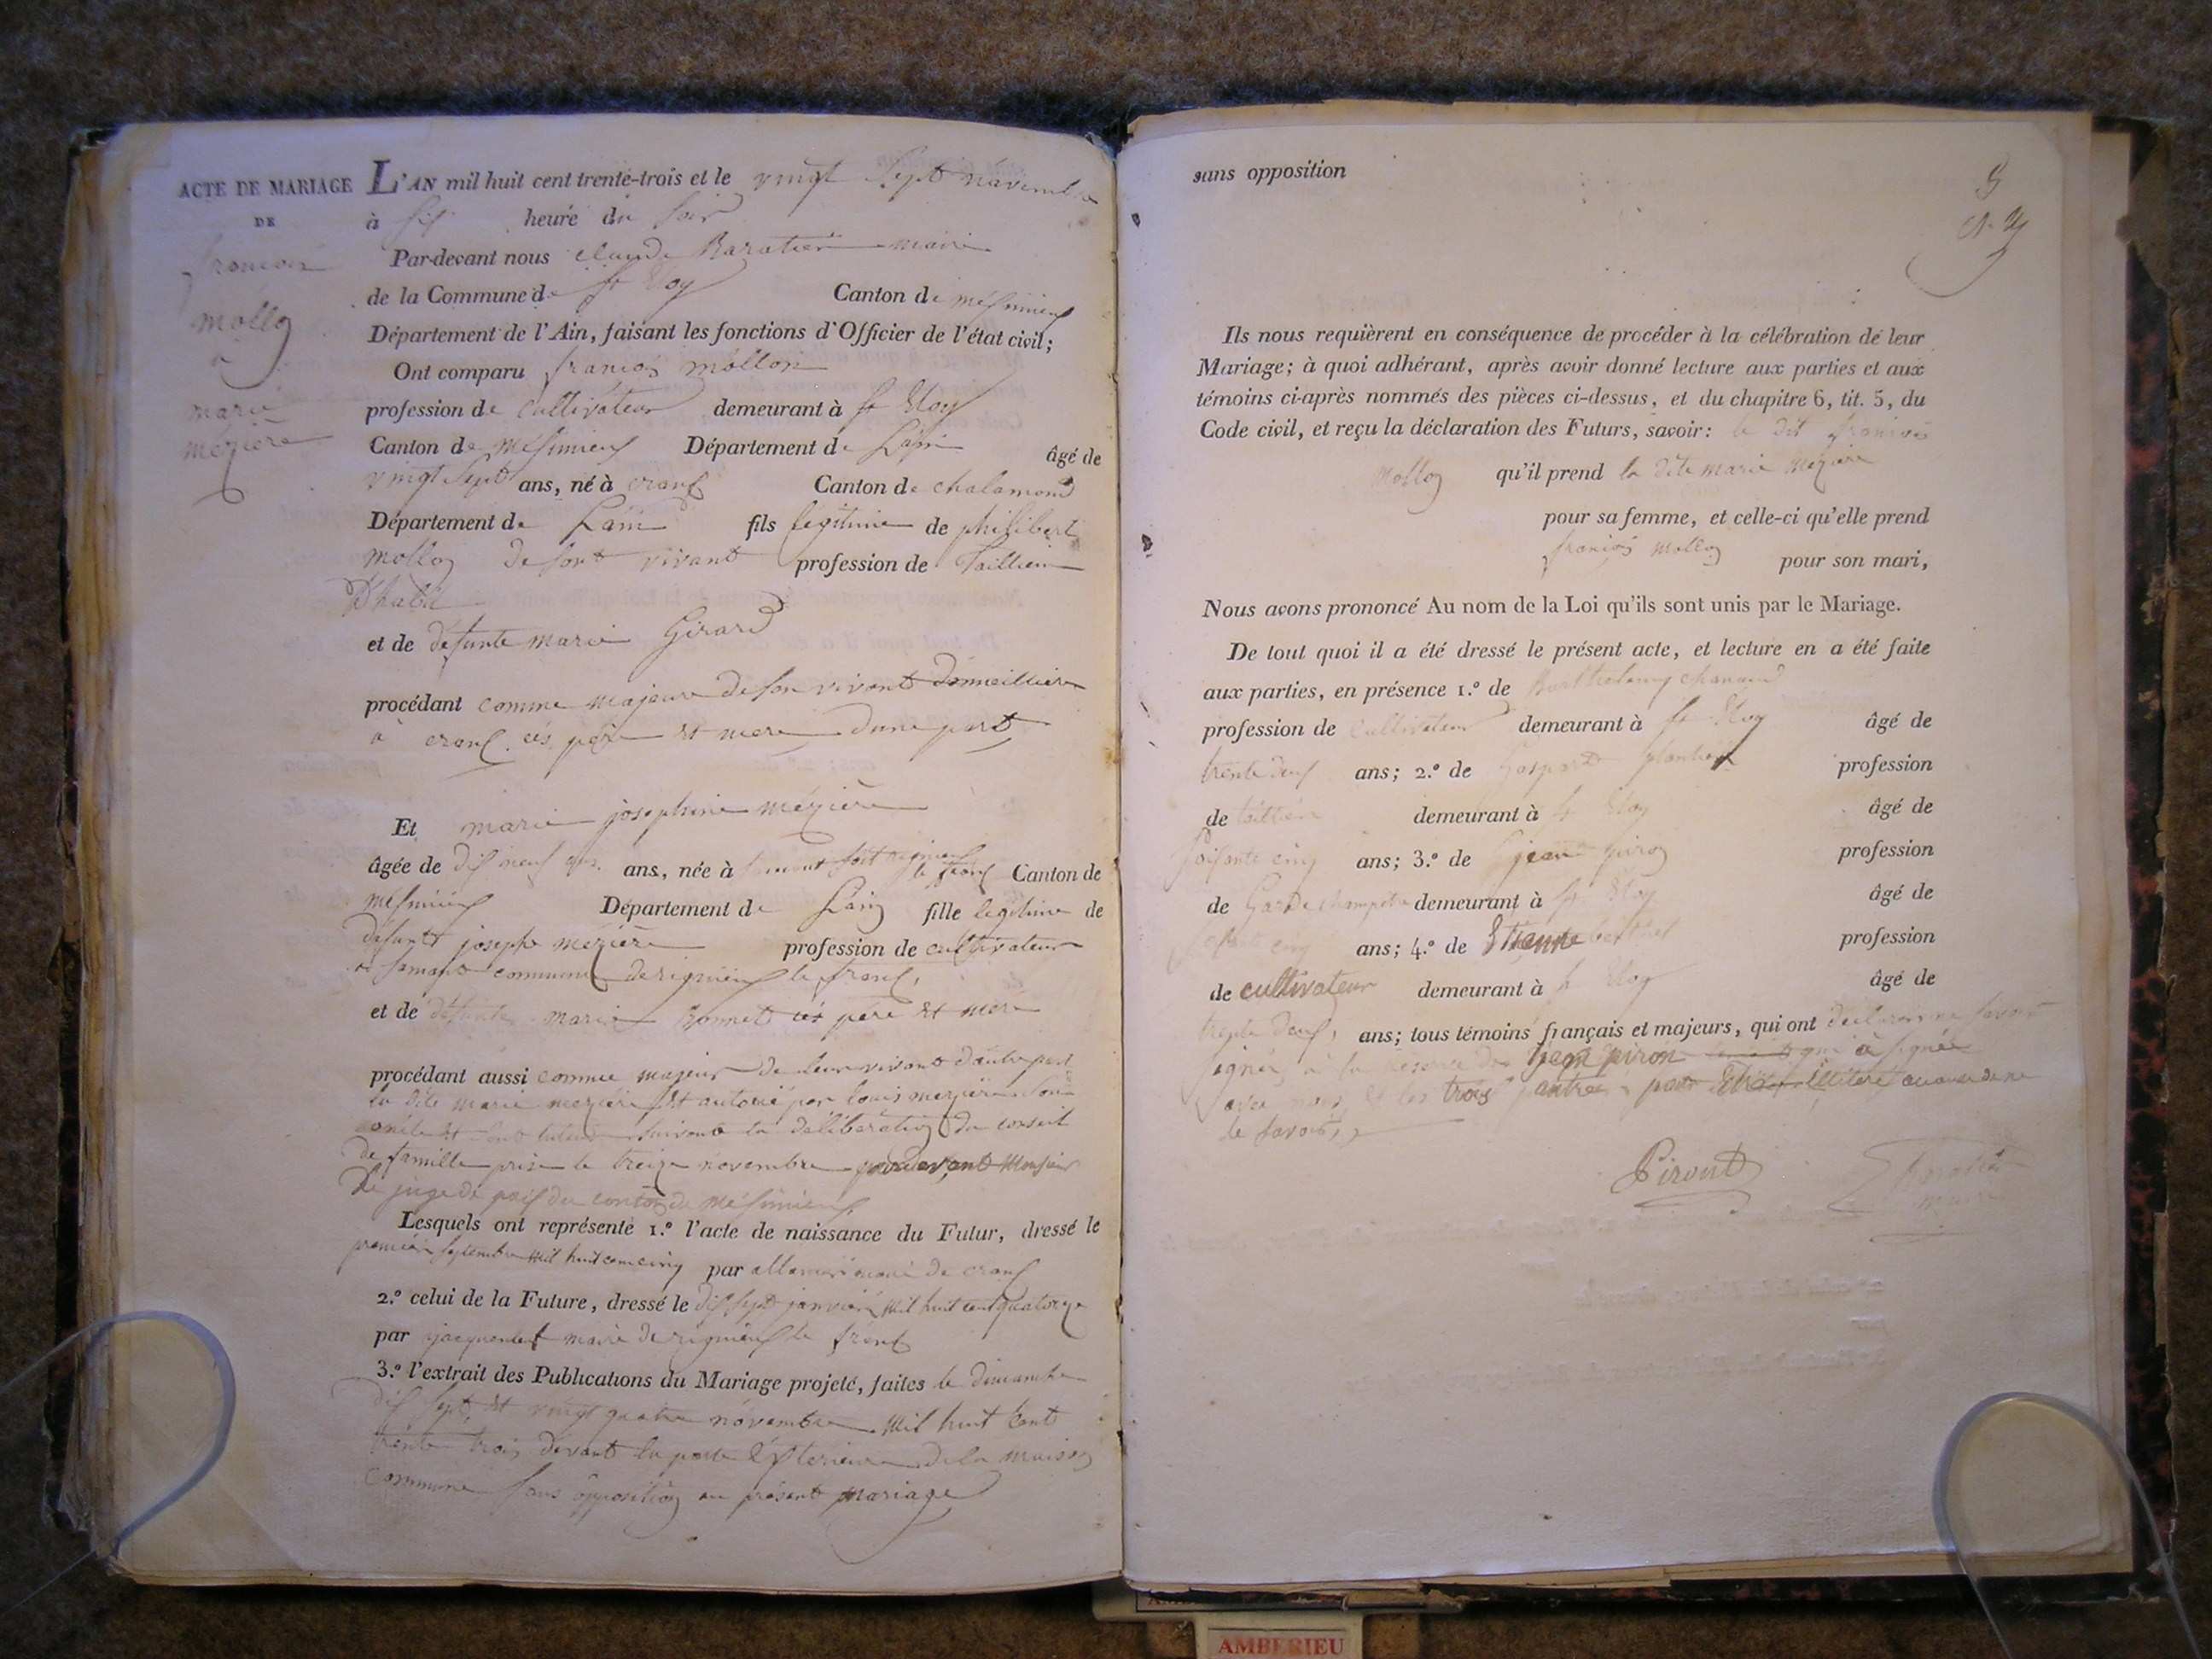 ACTE DE MARIAGE
DE
françois
mollon
a
marie
mézière
L'AN mil huit cent trente-trois et le vingt sept novembre
à six heure du soir
Par-devant nous claude Baratier maire
de la Commune de st Eloy Canton de mésimieux
Département de l'Ain, faisant les fonctions d'Officier de l'état civil;
Ont comparu françois mollon
profession de cultivateur demeurant à st Eloy
Canton de mésimieux Département de Lain âgé de
vingt sept ans, né à crans Canton de chalamond
Département de Lain fils legitime de philibert
mollon de sont vivant profession de Taillieur
D'habit
et de défunte marie Girard
procédant comme majeure de son vivant domeillier
à crans ces père et mere dune part
Et marie josephine mézière
âgée de dix neuf ans, née à rignieux le franc Canton de
mésimieux Département de Lain fille legitime de
défunt joseph mézière profession de cultivateur
a samans commune de rignieux le franc,
et de défunte marie Bonnet ces père et mere
procédant aussi comme majeur de leur vivant d'autre part
la dite marie mezière est autorié par louis mezière son
oncle et sont tuteur suivant la déliberation du conseil
de famille prise le treize novembre pardevant Monsieur
le juge de paix du canton de mésimieux,
Lesquels ont représenté 1.º l'acte de naissance du Futur, dressé le
premier septembre mil huit cent cinq par maire de crans
2.º celui de la Future, dressé le dix sept janvier mil huit cent quatorze
par jacquemet maire de rignieux le franc
3.º l'extrait des Publications du Mariage projeté, faites le dimanche
dix sept et vingt quatre novembre mil huit cent
trente trois devant la porte exterieure de la maison
commune sans opposition au présent mariage
sans opposition
Ils nous requièrent en conséquence de procéder à la célébration de leur
Mariage; à quoi adhérant, après avoir donné lecture aux parties et aux
témoins ci-après nommés des pièces ci-dessus, et du chapitre 6, tit. 5, du
Code civil, et reçu la déclaration des Futurs, savoir: le dit françois
Mollon qu'il prend la dite marie mézière
pour sa femme, et celle-ci qu'elle prend
françois mollon pour son mari,
Nous avons prononcé Au nom de la Loi qu'ils sont unis par le Mariage.
De tout quoi il a été dressé le présent acte, et lecture en a été faite
aux parties, en présence 1.º de Barthelemy
profession de cultivateur demeurant à st Eloy âgé de
trente deux ans; 2.º de Gaspard plantier profession
de demeurant à st Eloy âgé de
soisante cinq ans; 3.º de jean piron profession
de Garde champetre demeurant à st Eloy âgé de
cinq ans; 4.º de Etienne profession
de cultivateur demeurant à st Eloy âgé de
trente deux, ans; tous témoins français et majeurs, qui ont
signer à la reserve de jean piron qui a signée
avec nous et les trois autres
le savoir,
Piroud
Baratier
maire
AMBERIEU